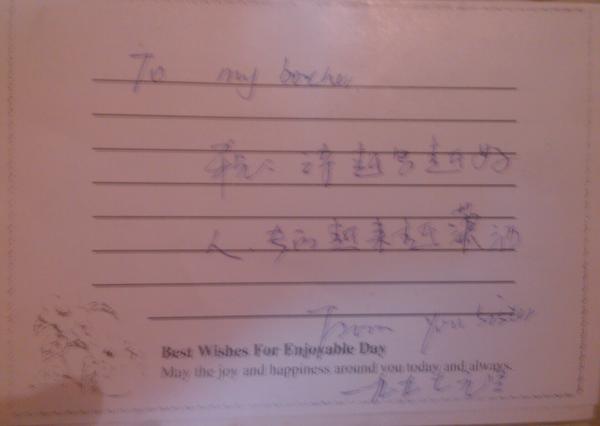 To my
诗越写越好
人、长的越来越潇洒
From you sister
Best Wishes For Enjoyable Day
May the joy and happiness around you today and always.